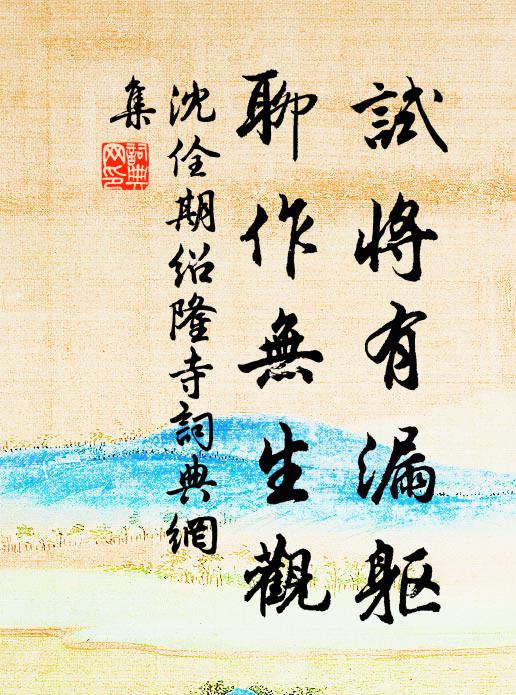 試將有漏軀
聊作無生觀
沈佺期紹隆寺詞典網
集
詞典
网印